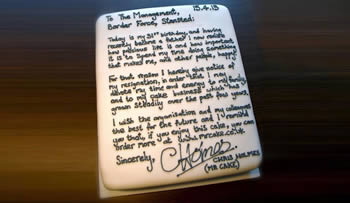 To The Management, 15.4.13
Border Force, Stansted;
Today is my 31st birthday, and having
recently become a father I now realise
how precious life is and how important
it is to spend my time doing something
that makes me, and other people, happy.
For that reason I hereby give notice of
my resignation, in order that I may
devote my time and energy to my family
and to my cake business which has
grown steadily over the past few years.
I wish the organisation and my colleagues
the best for the future, and I remind
you that, if you enjoy this cake, you can
order more at www.mrcake.co.uk
Sincerely,
CHolmes
CHRIS HOLMES
(MR CAKE)